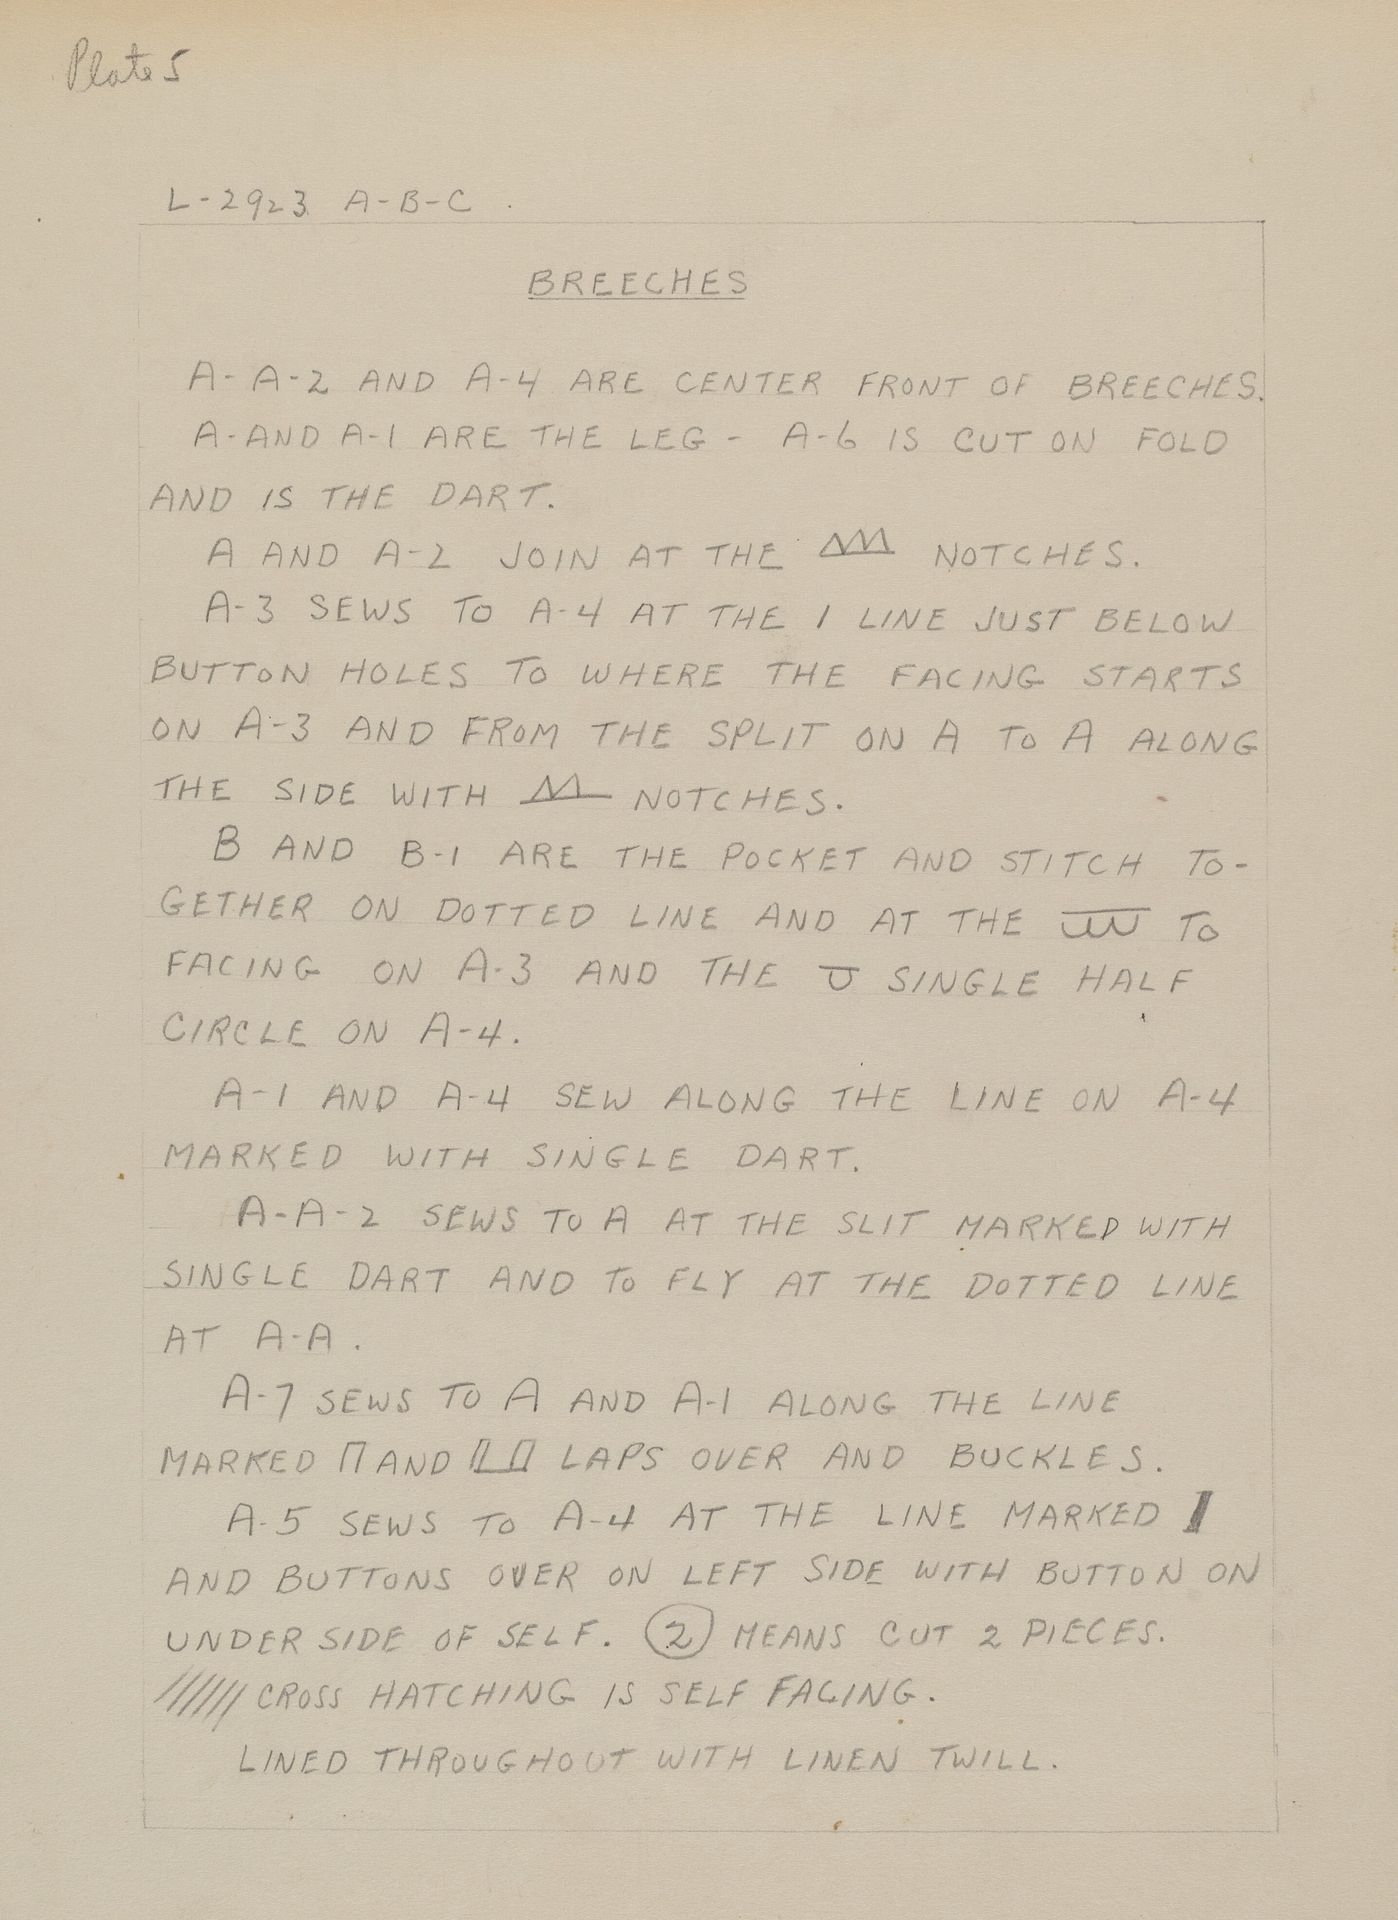 Plate 5
L-2923 A-B-C
BREECHES
A- A-2 AND A-4 ARE CENTER FRONT OF BREECHES.
A-AND A-1 ARE THE LEG - A-6 IS CUT ON FOLD
AND IS THE DART.
A AND A-2 JOIN AT THE NOTCHES.
A-3 SEWS TO A-4 AT THE 1 LINE JUST BELOW
BUTTON HOLES TO WHERE THE FACING STARTS
ON A-3 AND FROM THE SPLIT ON A TO A ALONG
THE SIDE WITH NOTCHES.
B AND B-1 ARE THE POCKET AND STITCH TO-
GETHER ON DOTTED LINE AND AT THE TO
FACING ON A-3 AND THE SINGLE HALF
CIRCLE ON A-4.
A-1 AND A-4 SEW ALONG THE LINE ON A-4
MARKED WITH SINGLE DART.
A-A-2 SEWS TO A AT THE SLIT MARKED WITH
SINGLE DART AND TO FLY AT THE DOTTED LINE
AT A-A.
A-7 SEWS TO A AND A-1 ALONG THE LINE
MARKED AND LAPS OVER AND BUCKLES.
A-5 SEWS TO A-4 AT THE LINE MARKED
AND BUTTONS OVER ON LEFT SIDE WITH BUTTON ON
UNDER SIDE OF SELF. 2 MEANS CUT 2 PIECES.
////// CROSS HATCHING IS SELF FACING.
LINED THROUGHOUT WITH LINEN TWILL.